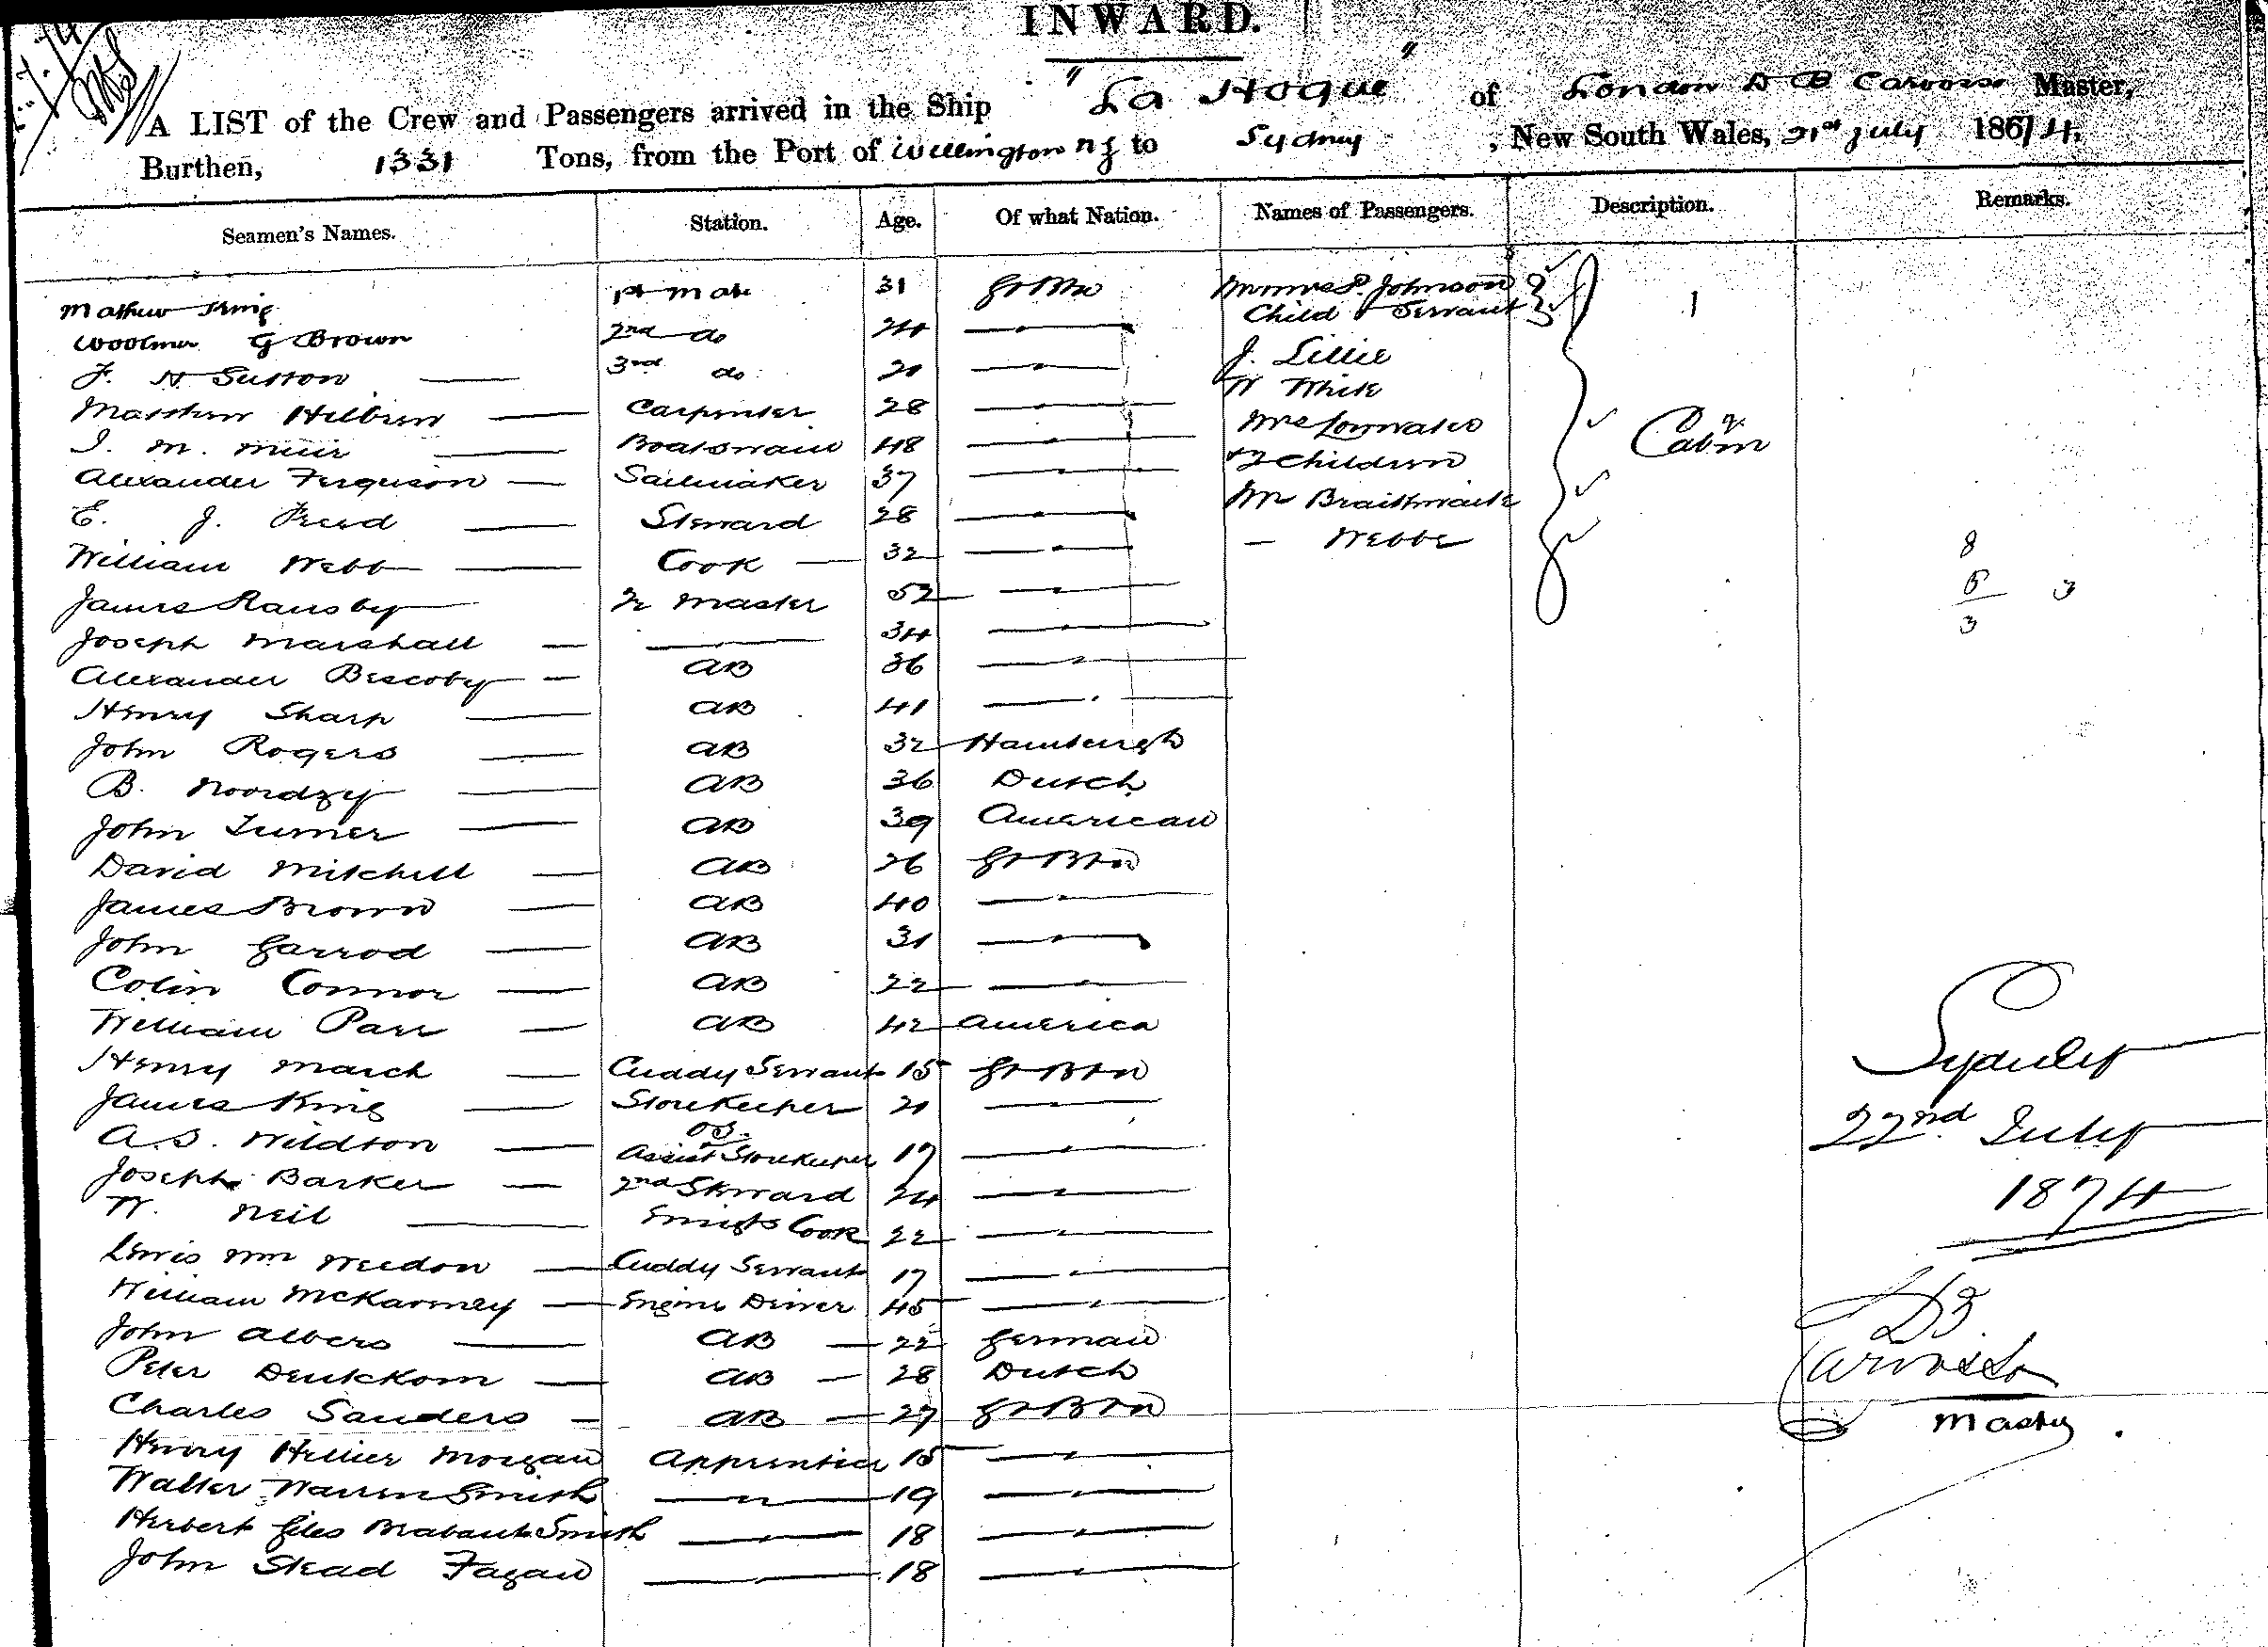 INWARD.
A LIST of the Crew and Passengers arrived in the Ship "La Hogue" of London D B Carvosso Master,
Burthen, 1331 Tons, from the Port of Wellington NZ to Sydney, New South Wales, 21st July 1874.
Seamen's Names. Station. Age. Of what Nation. Names of Passengers. Description. Remarks.
Mathew King 1st Mate 31 Gt Btn Mr Mrs P. Johnson
Child & Servant 1
Woolmer G Brown 2nd do 24 — " —
F. H Sutton — 3rd do 21 — " — J. Lillie
W White
Matthew Hilbren — Carpenter 28 — " — Mrs Lowwater Cabin
J. M. Muir — Boatswain 48 — " — & 2 Children
Alexander Ferguson — Sailmaker 37 — " —
E. J. Freed — Steward 28 — " — Mr Braithwaite
William Webb — Cook — 32 — " — — Webbe 8
James Ransby — Qr Master 52 — " — 5 3
Joseph Marshall — — 34 — " — 3
Alexander Bescoby — AB 36 — " —
Henry Sharp — AB 41 — " —
John Rogers — AB 32 Hamburgh
B. Noordzy — AB 36 Dutch
John Turner — AB 39 American
David Mitchell — AB 26 Gt Btn
James Brown — AB 40 — " —
John Garrod — AB 31 — " —
Colin Connor — AB 22 — " —
William Parr — AB 42 America
Henry March — Cuddy Servant 15 Gt Btn
James King — Storekeeper 21 — " —
A. S. Wildton — OS. Assist Storekeeper 17 — " —
Joseph Barker — 2nd Steward 24 — " —
W. Neil — Emigts Cook 22 — " —
Lewis Wm Weedon — Cuddy Servant 17 — " —
William McKarmey — Engine Driver 45 — " —
John Albers — AB — 22 German
Peter Deukkom — AB — 28 Dutch
Charles Sanders — AB — 27 Gt Btn
Henry Hellier Morgan Apprentice 15 — " —
Walter Warren Smith — " — 19 — " —
Herbert Giles Brabant Smith — " — 18 — " —
John Stead Fagan — " — 18 — " —
Sydney
22nd July
1874
D B
Carvosso
Master.